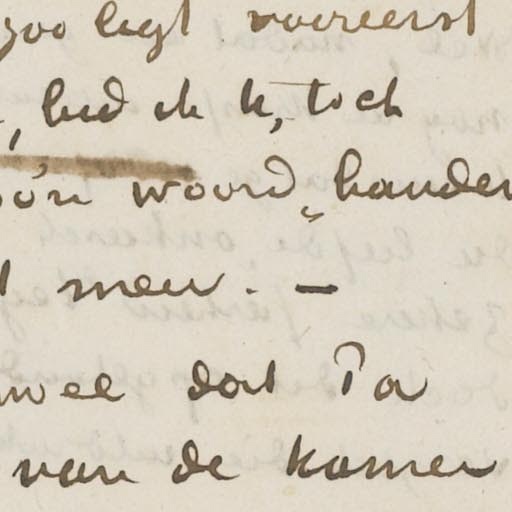 zoo legt vooreerst
, bid ik U, toch
zóó'n woord „handen
men. —
wee dat Pa
van de kamer